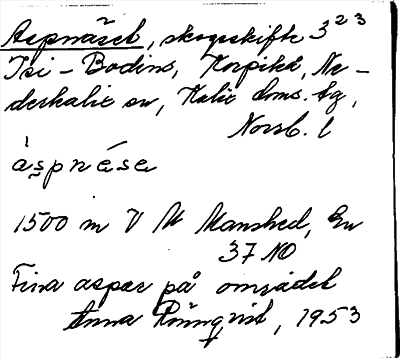 Aspnäset, skogsskifte 3 2 3
Isi-Bodins, Korpikå, Ne-
derkalix sn, Kalix doms. tg,
Norrb. l
àspnése
1500 m V M Manshed, En
37 NO
Fina aspar på området
Anna Rönnqvist, 1953